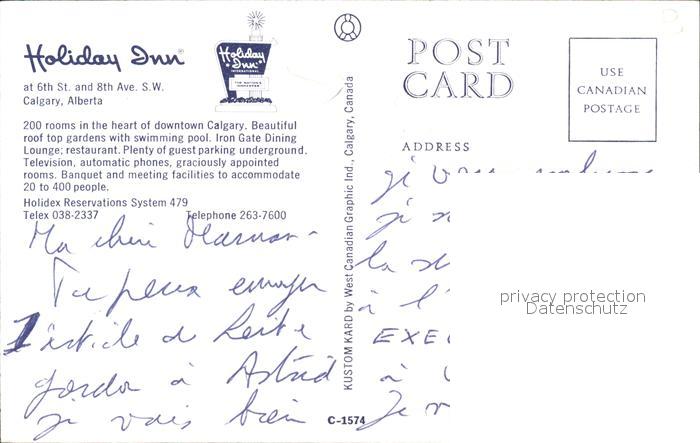 Holiday Inn
at 6th St. and 8th Ave. S.W.
Calgary, Alberta
Holiday
Inn
INTERNATIONAL
200 rooms in the heart of downtown Calgary. Beautiful
roof top gardens with swimming pool. Iron Gate Dining
Lounge; restaurant. Plenty of guest parking underground.
Television, automatic phones, graciously appointed
rooms. Banquet and meeting facilities to accommodate
20 to 400 people.
Holidex Reservations System 479
Telex 038-2337 Telephone 263-7600
Ma
Tu peux envoyer
article de
à Astrid
je vais bien
C-1574
KUSTOM KARD by West Canadian Graphic Ind., Calgary, Canada
POST
CARD
USE
CANADIAN
POSTAGE
ADDRESS
je
je
la
à l'
EXE
à
Je
privacy protection
Datenschutz